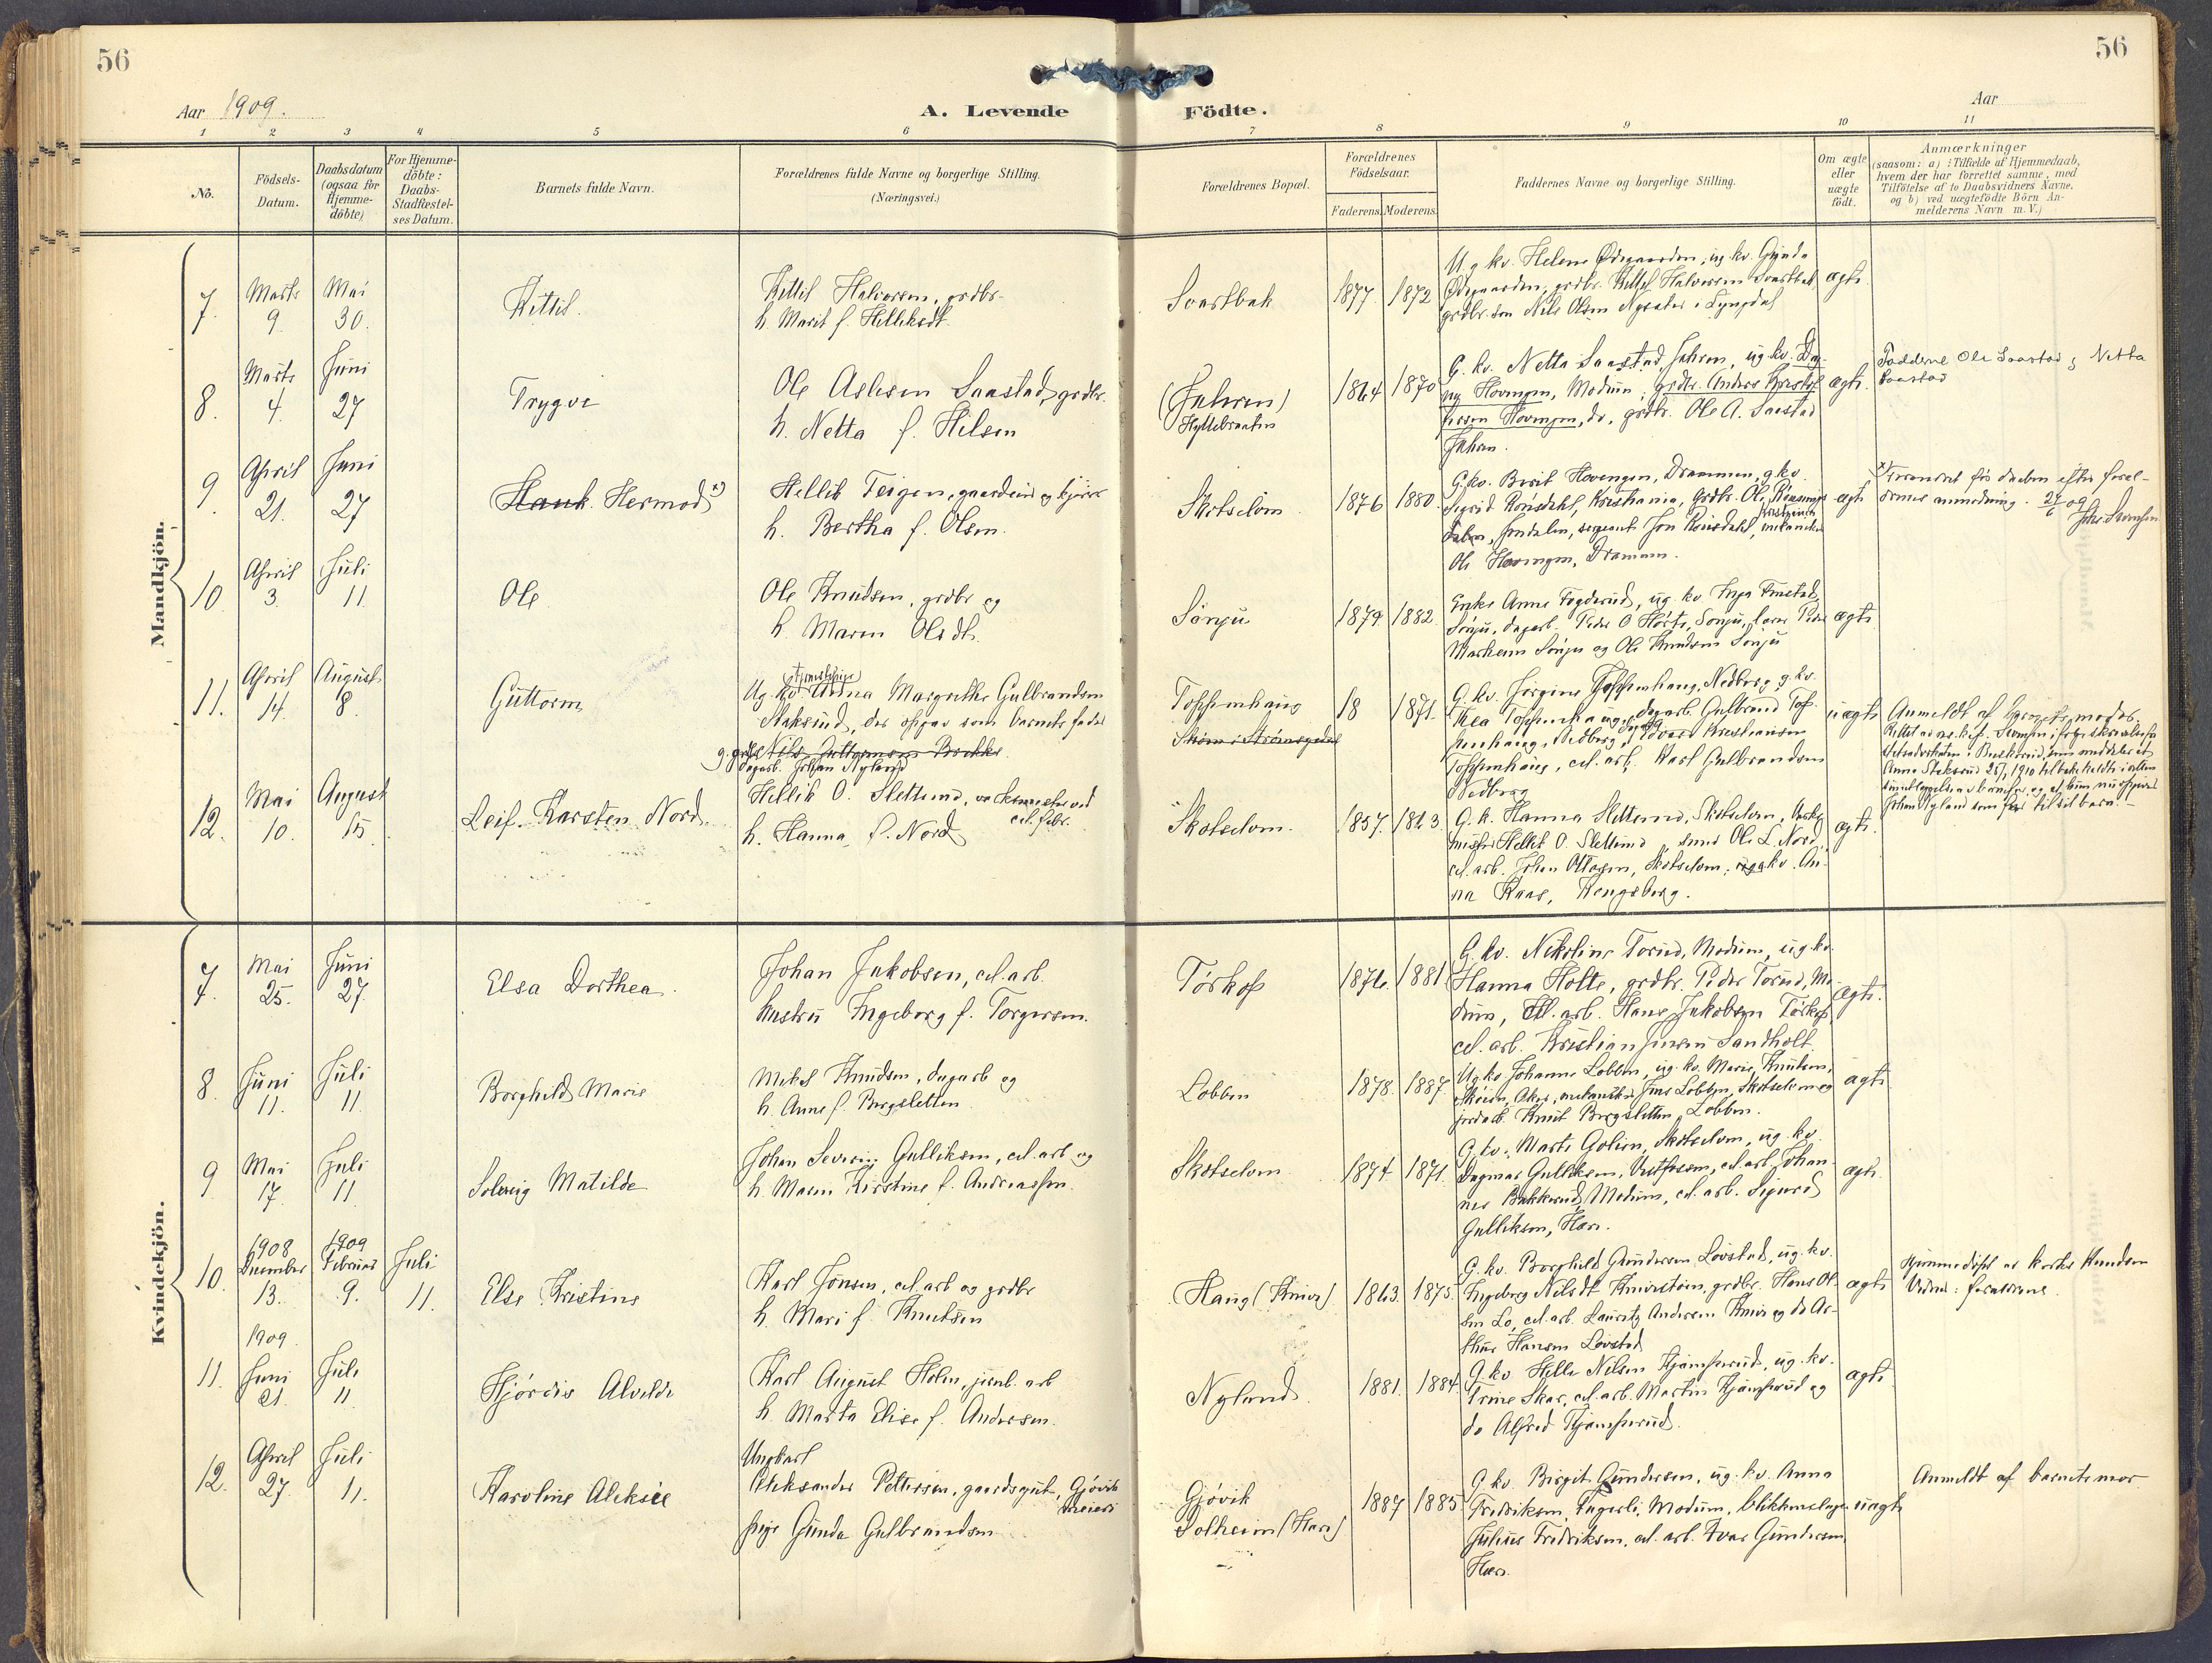 56
56
Aar 1909.
A. Levende Födte.
Aar
1 2 3 4 5 6 7 8 9 10 11
No.
Födsels-Datum.
Daabsdatum (ogsaa for Hjemme-döbte)
For Hjemme-döbte: Daabs-Stadfæstel-ses Datum.
Barnets fulde Navn.
Forældrenes fulde Navne og borgerlige Stilling.
(Næringsvei.)
Forældrenes Bopæl.
Forældrenes Födselsaar.
Faderens. Moderens.
Faddernes Navne og borgerlige Stilling.
Om ægte eller uægte født.
Anmærkninger
(saasom: a) i Tilfælde af Hjemmedaab,
hvem der har forrettet samme, med
Tilföielse af to Daabsvidners Navne.
og b) ved uægtefödte Börn An-
melderens Navn m. V.)
Mandkjön.
7. Marts 9. Mai 30.
Kittil.
Kittil Halvorsen, grdbr.
h. Marit f. Helliksdt.
Svartbak
1877. 1872
Ug kv. Helene Ødegaarden, ug kv. Gunda
Ødegaarden, grdbr. Kittil Halvorsen Svartbak
grdbr. søn Nils Olsen
ægte
8. Marts 4. Juni 27
Trygve
Ole Aslesen Saastad, grdbr.
h. Netta f. Hilsen
(Fuhren)
Hyttebraaten
1864 1870
G. kv. Netta Saastad, Fuhren, ug. kv. Dag-
ny Hovengen, Modum, grdbr. Anders Kristof
fersen Hovengen, do, grdbr. Ole A. Saastad
Fuhren.
ægte.
Faddere Ole Saastad og Netta
Saastad
9. April 21. Juni 27
Hauk Hermod x)
Hellik Teigen, gaardeier og
h. Bertha f. Olsen.
Skotselven
1876 1880.
G. kv. Berit Hovengen, Drammen, g. kv.
Sigrid Rønsdahl, Kristiania, grdbr. Ole
sergeant Jon Rønsdahl, Kristiania
Ole Hovengen, Drammen.
ægte
x) Forandret før daaben efter foræl-
drenes anmodning. 27/6 09
10. April 3. Juli 11.
Ole
Ole Knudsen, grdbr og
h. Maren Olsdt.
Sönju
1879 1882.
Enke Anne Fogderud, ug. kv. Inga
Sönju, dagarb. Peder O
Sönju og Ole Knudsen Sönju
ægte
11. April 14. August 8.
Guttorm
Ug. kv tjenestepige Anna Margrethe Gulbrandsen
Staksrud, der opgav som barnets fader
g. grdbr Nils Guttormsen Brekke.
dagarb. Johan Nyland
Toppenhaug
Skøien i Strømsgodset
18 1871.
G. kv. Jørgine Toppenhaug, Nedberg, g. kv.
Thea Toppenhaug, dagarb. Gulbrand Top-
penhaug, Nedberg, Edvard Kristiansen
Toppenhaug, cel. arb. Karl Gulbrandsen
Nedberg
uægte
Anmeldt af barnets moder.
Johan Nyland som far til sit barn.
12. Mai 10. August 15.
Leif Karsten Nord.
Hellik O. Slettemo, værksmester ved
cel. fabr.
h. Hanna f. Nord
Skotselven.
1857. 1863.
G. k. Hanna Slettemo, Skotselven, Værks
mester Hellik O. Slettemo, smed Ole L. Nord,
cel. arb. Johan Ottosen, Skotselven, ug. kv. An-
na Kaas, Kongsberg.
ægte.
Kvindekjön.
7. Mai 25. Juni 27.
Elsa Dorthea.
Johan Jakobsen, cel. arb.
hustru Ingeborg f. Torgersen.
Tørkop
1876. 1881.
G. kv. Nikoline Torud, Modum, ug. kv.
Hanna Holte, grdbr. Peder Torud, Mo-
dum, cel. arb. Hans Jakobsen Tørkop,
cel. arb. Kristian Jensen Sandholt.
ægte.
8. Juni 11. Juli 11.
Borghild Marie
Mikal Knudsen, dagarb og
h. Anne f. Bergsletten.
Lobben
1878. 1887
Ug kv Johanne Lobben, ug. kv. Marie Knutsen,
Skøien, Aker, Jens Lobben, Skotselven og
jordarb. Knut Bergsletten, Lobben.
ægte
9 Mai 17. Juli 11.
Solveig Matilde
Johan Severin Gulliksen, cel. arb og
h. Maren Kirstine f. Andreassen.
Skotselven
1874 1871.
G. kv. Marte Golien, Skotselven, ug. kv.
Dagmar Gulliksen, Vestfossen, cel. arb. Johan-
nes Bakkerud, Modum, cel. arb. Sigurd
Gulliksen, Hær.
ægte.
10. 1908 December 13. 1909 Februar 9. Juli 11.
Else Kristine
Karl Jonsen, cel. arb og grdbr
h. Mari f. Knutsen
Haug (Knive)
1863. 1875.
G. kv. Borghild Gundersen Løvstad, ug. kv.
Ingeborg Nilsdt Kniveslien, grdbr. Hans Ol-
sen Lo, cel. arb. Lauritz Andersen Knive og do Ar-
thur Hansen Løvstad
ægte
Hjemmedøpt av Kirsti Knudsen
Vidne: forældrene.
1909.
11. Juni 21. Juli 11.
Hjördis Alvilde
Karl August Holm, jernb. arb
h. Marta Elise f. Andersen.
Nyland
1881. 1884.
G. kv. Helle Nilsen Hjemperud, ug. kv.
Trine Skar, cel. arb. Martin Hjemperud og
do Alfred Hjemperud.
ægte
12. April 27. Juli 11.
Karoline Aleksie
Ungkarl
Aleksander Pettersen, gaardsgut, Gjøvik
meieri
pige Gunda Gulbrandsen
Gjövik
Solheim (Hær)
1887 1885.
G. kv. Birgit Gundersen, ug. kv. Anna
Fredriksen, Fagerli, Modum, blikkenslager
Julius Fredriksen, cel. arb. Ivar Gundersen
Hær.
uægte
Anmeldt af barnets mor